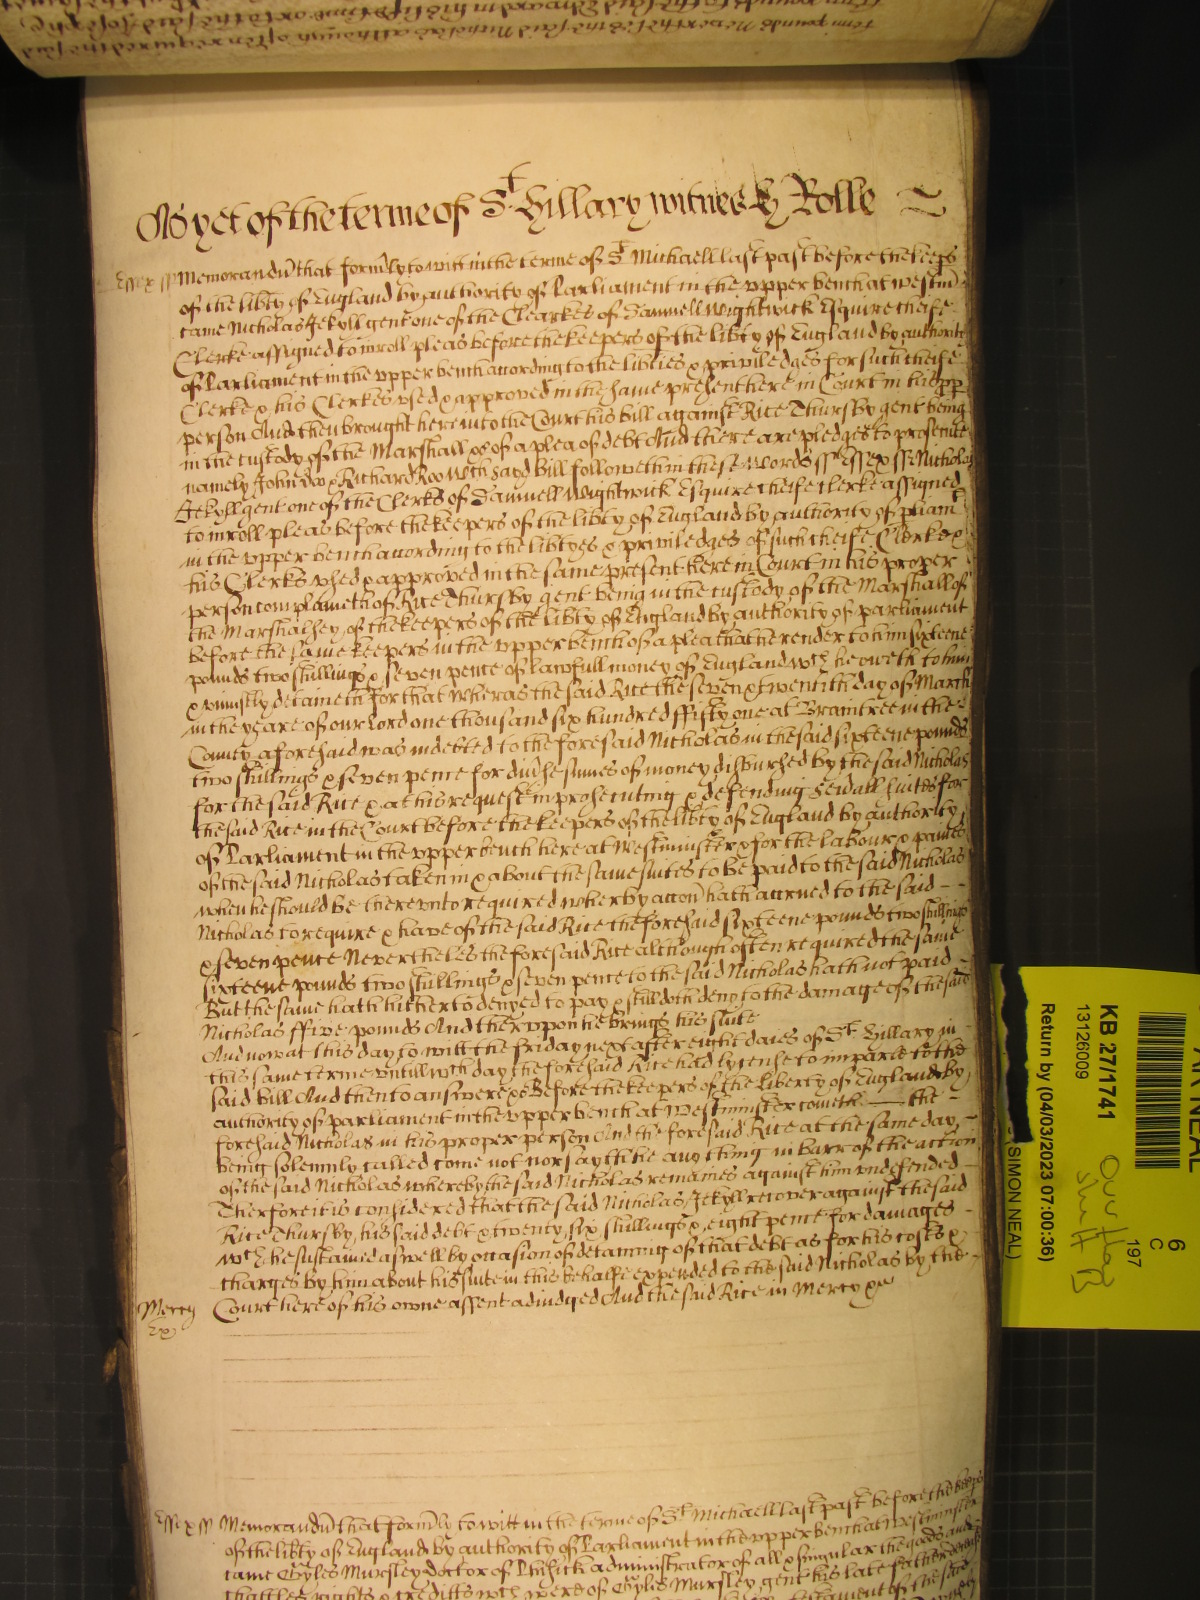 As yet of the terme of St Hillary witnes H Rolle
Essex ss Memorandu that form'ly to witt in the terme of St Michaell last past before the keeps
of the lib'ty of England by authority of Parliament in the upper bench at Westm'
came Nicholas Jekyll gent one of the Clearkes of Samuell Wightwick Esquire cheife
Clerke assigned to inroll pleas before the keepers of the lib'ty of England by authoritie
of Parliament in the upper bench according to the lib'ties & priviledges for such cheife
Clerke & his Clerkes used & approved in the same present here in Court in his pp
person And then brought here into the Court his bill against Rice Thursby gent being
in the custody of the Marshall &c of a plea of debt And there are pledges to prosecute
namely John Doo & Richard Roo Wch said bill followeth in these words ss Essex ss Nicholas
Jekyll gent one of the Clerks of Samuell Wightwick Esquire cheife Clerke assigned
to inroll pleas before the keepers of the lib'ty of England by authority of pliam't
in the upper bench according to the lib'tyes & priviledges of such cheife Clerke &
his Clerks used & approved in the same present here in Court in his proper
person complaineth of Rice Thursby gent being in the custody of the Marshall of
the Marshalsey of the keepers of the lib'ty of England by authority of parliament
before the same keepers in the upper bench of a plea that he render to him sixteene
pounds two shillings & seven pence of lawfull money of England wch he oweth to him
& uniustly detaineth For that wheras the said Rice the seven & twentith day of March
in the yeare of our lord one thousand six hundred fifty one at Braintree in the
County aforesaid was indebted to the foresaid Nicholas in the said sixteene pounds
two shillings & seven pence for div'se sumes of money disbursed by the said Nicholas
for the said Rice & at his request in prosecuting & defending sev'all suites for
the said Rice in the Court before the keepers of the lib'ty of England by authority
of Parliament in the upper bench here at Westminster & for the labour & paines
of the said Nicholas taken in & about the same suites to be paid to the said Nicholas
when he should be thereunto required wherby accon hath accrued to the said - -
Nicholas to require & have of the said Rice the foresaid sixteene pounds two shillings
& seven pence Nevertheles the foresaid Rice although often required the same
sixteene pounds two shillings & seven pence to the said Nicholas hath not paid -
But the same hath hitherto denyed to pay & still doth deny to the damage of the said
Nicholas ffive pounds And therupon he brings his suite
And now at this day to witt the friday next after eight daies of St Hillary in -
this same terme untill wch day the foresaid Rice had lycense to imparle to the
said bill And then to answere &c Before the keepers of the Liberty of England by
authority of parliament in the upper bench at Westminster cometh —— the -
foresaid Nicholas in his proper person And the foresaid Rice at the same day -
being solemnly called come not nor sayth he any thing in barr of the action
of the said Nicholas whereby the said Nicholas remaines against him undefended -
Therfore it is considered that the said Nicholas Jekyll recover against the said
Rice Thursby his said debt & twenty six shillings & eight pence for damages -
wch he sustained aswell by occasion of detaining of that debt as for his costs &
charges by him about his suite in this behalfe expended to the said Nicholas by the
Mercy &c Court here of his owne assent adiudged And the said Rice in Mercy &c
Essex ss Memorandu that form'ly to witt in the terme of St Michaell last past before the keeps
of the lib'ty of England by authority of Parliament in the upper bench at Westminster
came Gyles Mursley doctor of Phisick administrator of all & singular the goods and
chattles rights & creditts wch were of Gyles Mursley gent his late father
KB 27/1741
13126009
Return by (04/03/2023 07:00:36)
(SIMON NEAL)
6
C
197